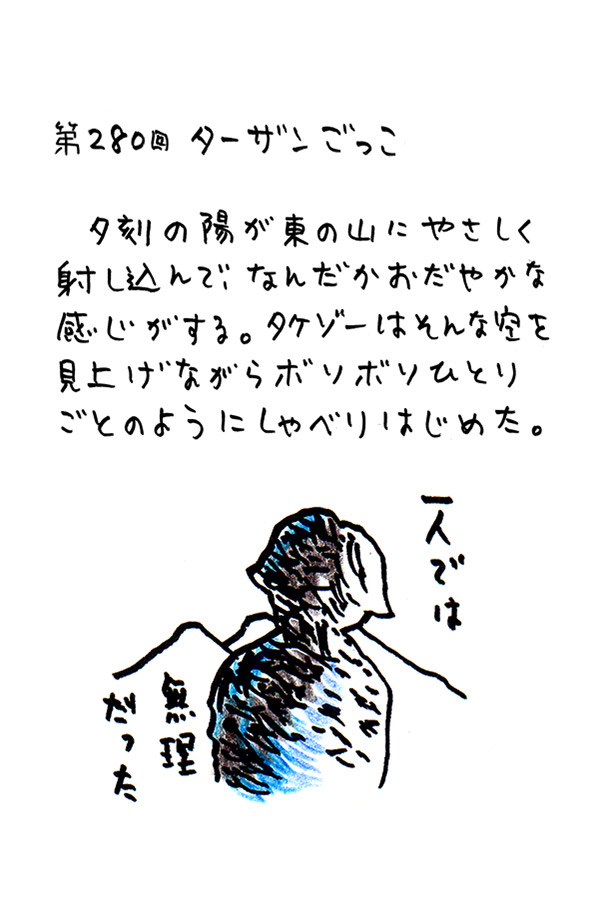 第280回 ターザンごっこ
夕刻の陽が東の山にやさしく
射し込んで、なんだかおだやかな
感じがする。タケゾーはそんな空を
見上げながらボソボソひとり
ごとのようにしゃべりはじめた。
一人では
無理
だった